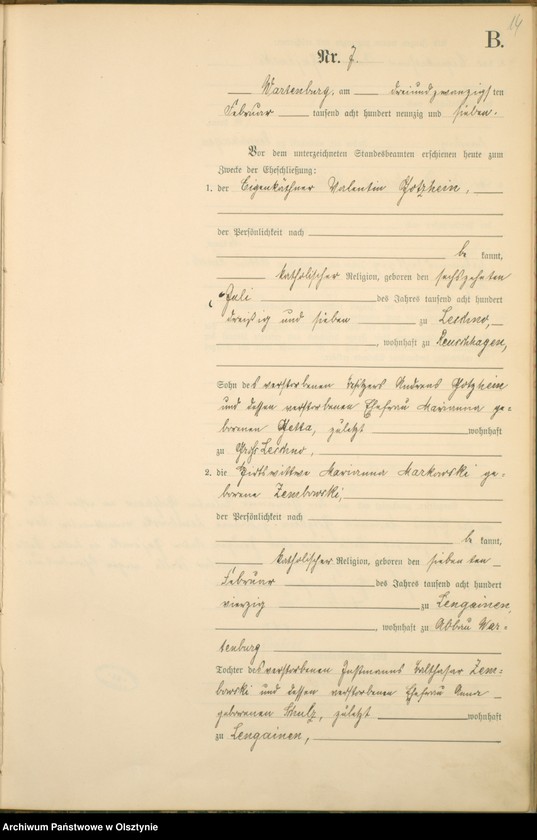 14
B.
Nr. 7.
Wartenburg, am dreiundzwanzigsten
Februar tausend acht hundert neunzig und sieben.
Vor dem unterzeichneten Standesbeamten erschienen heute zum
Zwecke der Eheschließung:
1. der Eigenkäthner Valentin Gotzhein,
der Persönlichkeit nach
be kannt,
katholischer Religion, geboren den sechszehnten
Juli des Jahres tausend acht hundert
dreißig und sieben zu Leschno,
, wohnhaft zu Reuschhagen,
Sohn des verstorbenen Besitzers Andreas Gotzhein
und dessen verstorbenen Ehefrau Marianna ge=
borenen Getta, zuletzt wohnhaft
zu Groß Leschno,
2. die Wirthswittwe Marianna Markowski ge=
borene Zembowski,
der Persönlichkeit nach
be kannt,
katholischer Religion, geboren den siebenten
Februar des Jahres tausend acht hundert
vierzig zu Lengainen,
, wohnhaft zu Abbau War=
tenburg
Tochter des verstorbenen Instmanns Balthasar Zem=
bowski und dessen verstorbenen Ehefrau Anna
geborenen Schulz, zuletzt wohnhaft
zu Lengainen,
Archiwum Państwowe w Olsztynie